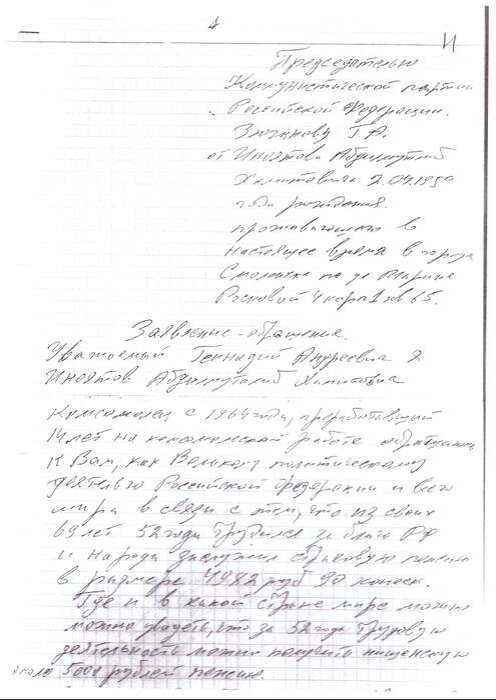 4
И
Председателю
Коммунистической партии
Российской Федерации.
Зюганову Г.А.
от Иноятова Абдулмуталиб
Хамитовича 2.04.1950
года рождения.
проживающего в
настоящее время в городе
Смоленске по ул Марины
Расковой 4 корп1 кв 65.
Заявление-обращение.
Уважаемый Геннадий Андреевич Я
Иноятов Абдулмуталиб Хамитович
Комсомолец с 1964 года, проработавший
14 лет на комсомольской работе обращаюсь
к Вам, как Великому политическому
деятелю Российской Федерации и всего
мира в связи с тем, что из своих
69 лет 52 года трудился за благо РФ
и народа заслужил страховую пенсию
в размере 4982 руб 90 копеек.
Где и в какой стране мира можно
можно увидеть, что за 52 года трудовую
деятельность можно получить нищенскую
около 5000 рублей пенсию.